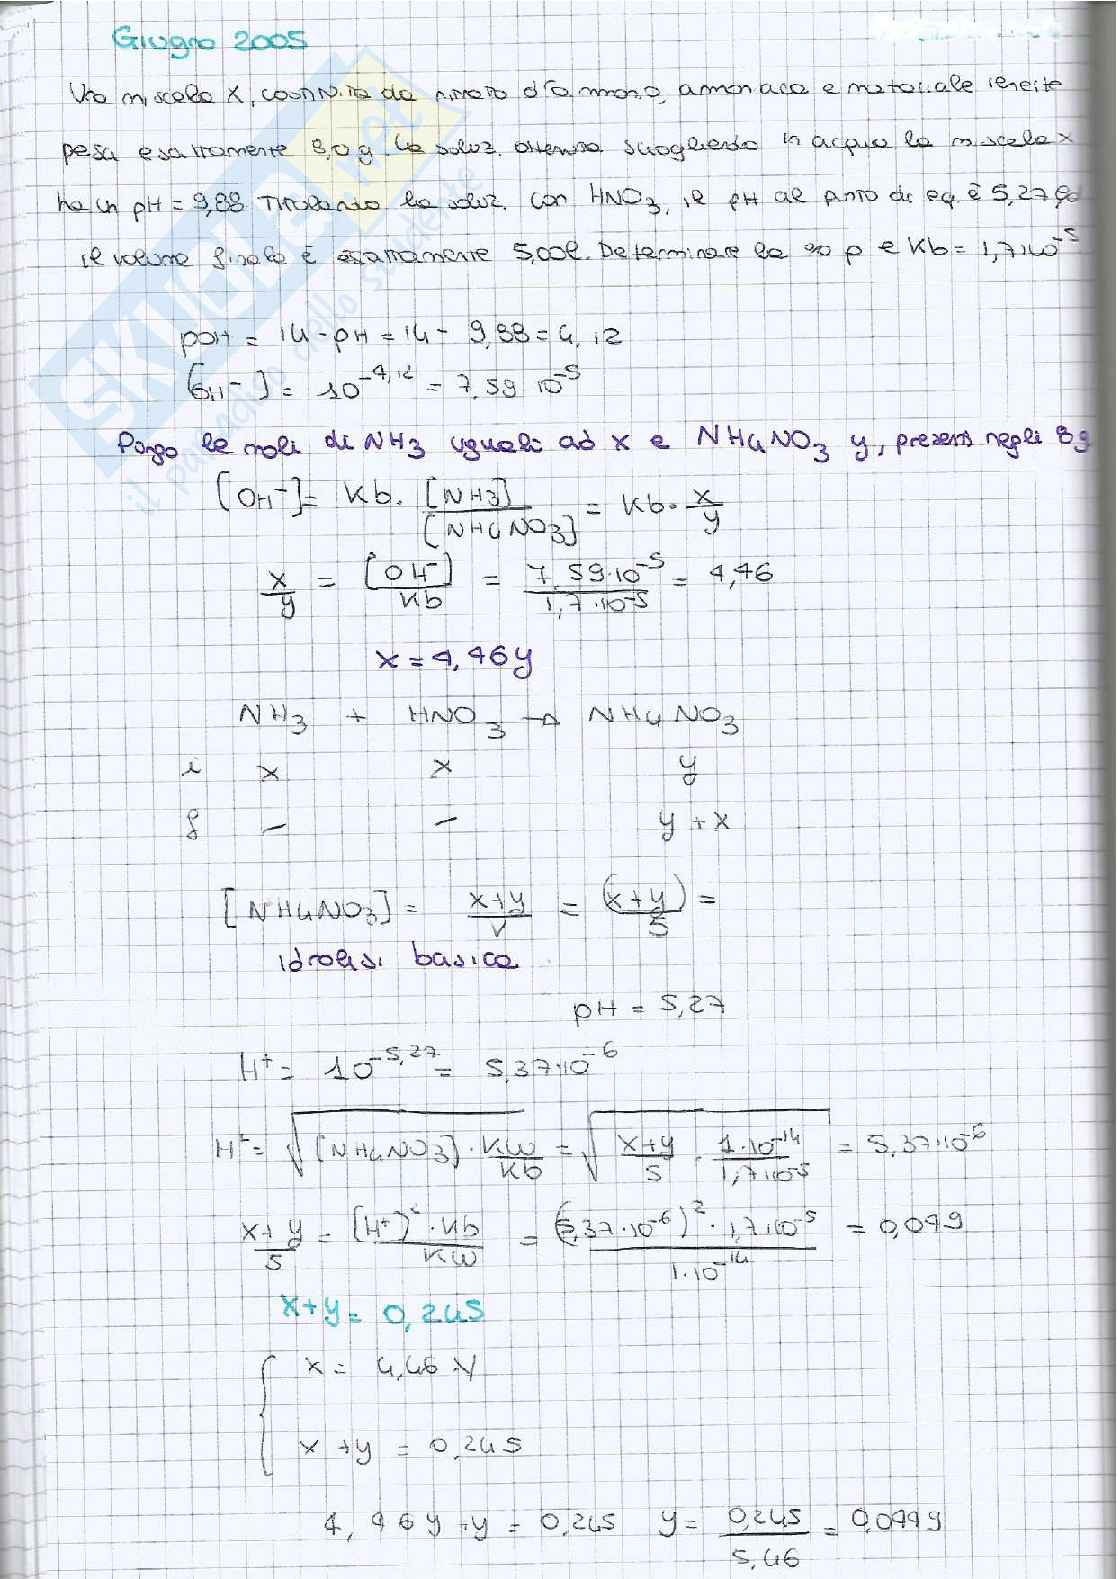 Giugno 2005
Una miscela X, costituita da nitrato d'ammonio, ammoniaca e materiale inerte
pesa esattamente 8,0 g. La soluz. ottenuta sciogliendo in acqua la miscela x
ha un pH = 9,88 Titolando la soluz. con HNO3, il pH al punto di eq. è 5,27 qd
il volume finale è esattamente 5,00l. Determinare la % p e Kb = 1,7·10⁻⁵
pOH = 14 - pH = 14 - 9,88 = 4,12
[OH⁻] = 10⁻⁴,¹² = 7,59 10⁻⁵
Pongo le moli di NH3 uguali ad x e NH4NO3 y, presenti negli 8g
[OH⁻] = Kb · [NH3]/[NH4NO3] = Kb · x/y
x/y = [OH⁻]/Kb = 7,59·10⁻⁵/1,7·10⁻⁵ = 4,46
x = 4,46y
NH3 + HNO3 → NH4NO3
i x x y
f — — y + x
[NH4NO3] = x+y/V = (x+y)/5 =
idrolisi basica
pH = 5,27
H⁺ = 10⁻⁵,²⁷ = 5,37·10⁻⁶
H⁺ = √[NH4NO3] · Kw/Kb = √x+y/5 · 1·10⁻¹⁴/1,7·10⁻⁵ = 5,37·10⁻⁶
x+y/5 = (H⁺)² · Kb/Kw = (5,37·10⁻⁶)² · 1,7·10⁻⁵/1·10⁻¹⁴ = 0,049
x+y = 0,245
x = 4,46 y
x + y = 0,245
4,46y + y = 0,245 y = 0,245/5,46 = 0,0449
SKUOLA.net